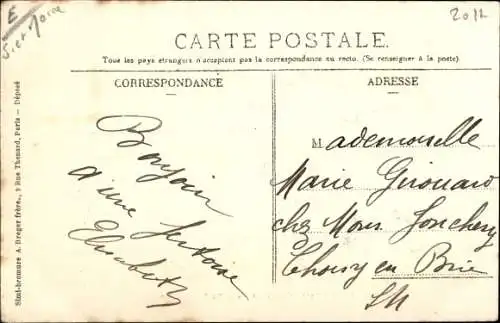 E
S et Marne
2012
CARTE POSTALE.
Tous les pays étrangers n'acceptent pas la correspondance au recto. (Se renseigner à la poste)
CORRESPONDANCE
ADRESSE
Bonjour
d'une
Elisabeth
Mademoiselle
Marie Girouard
chez Mons. Jonchery
Choisy en Brie
SM
Simi-bromure A. Breger frère., 9 Rue Thenard, Paris — Déposé